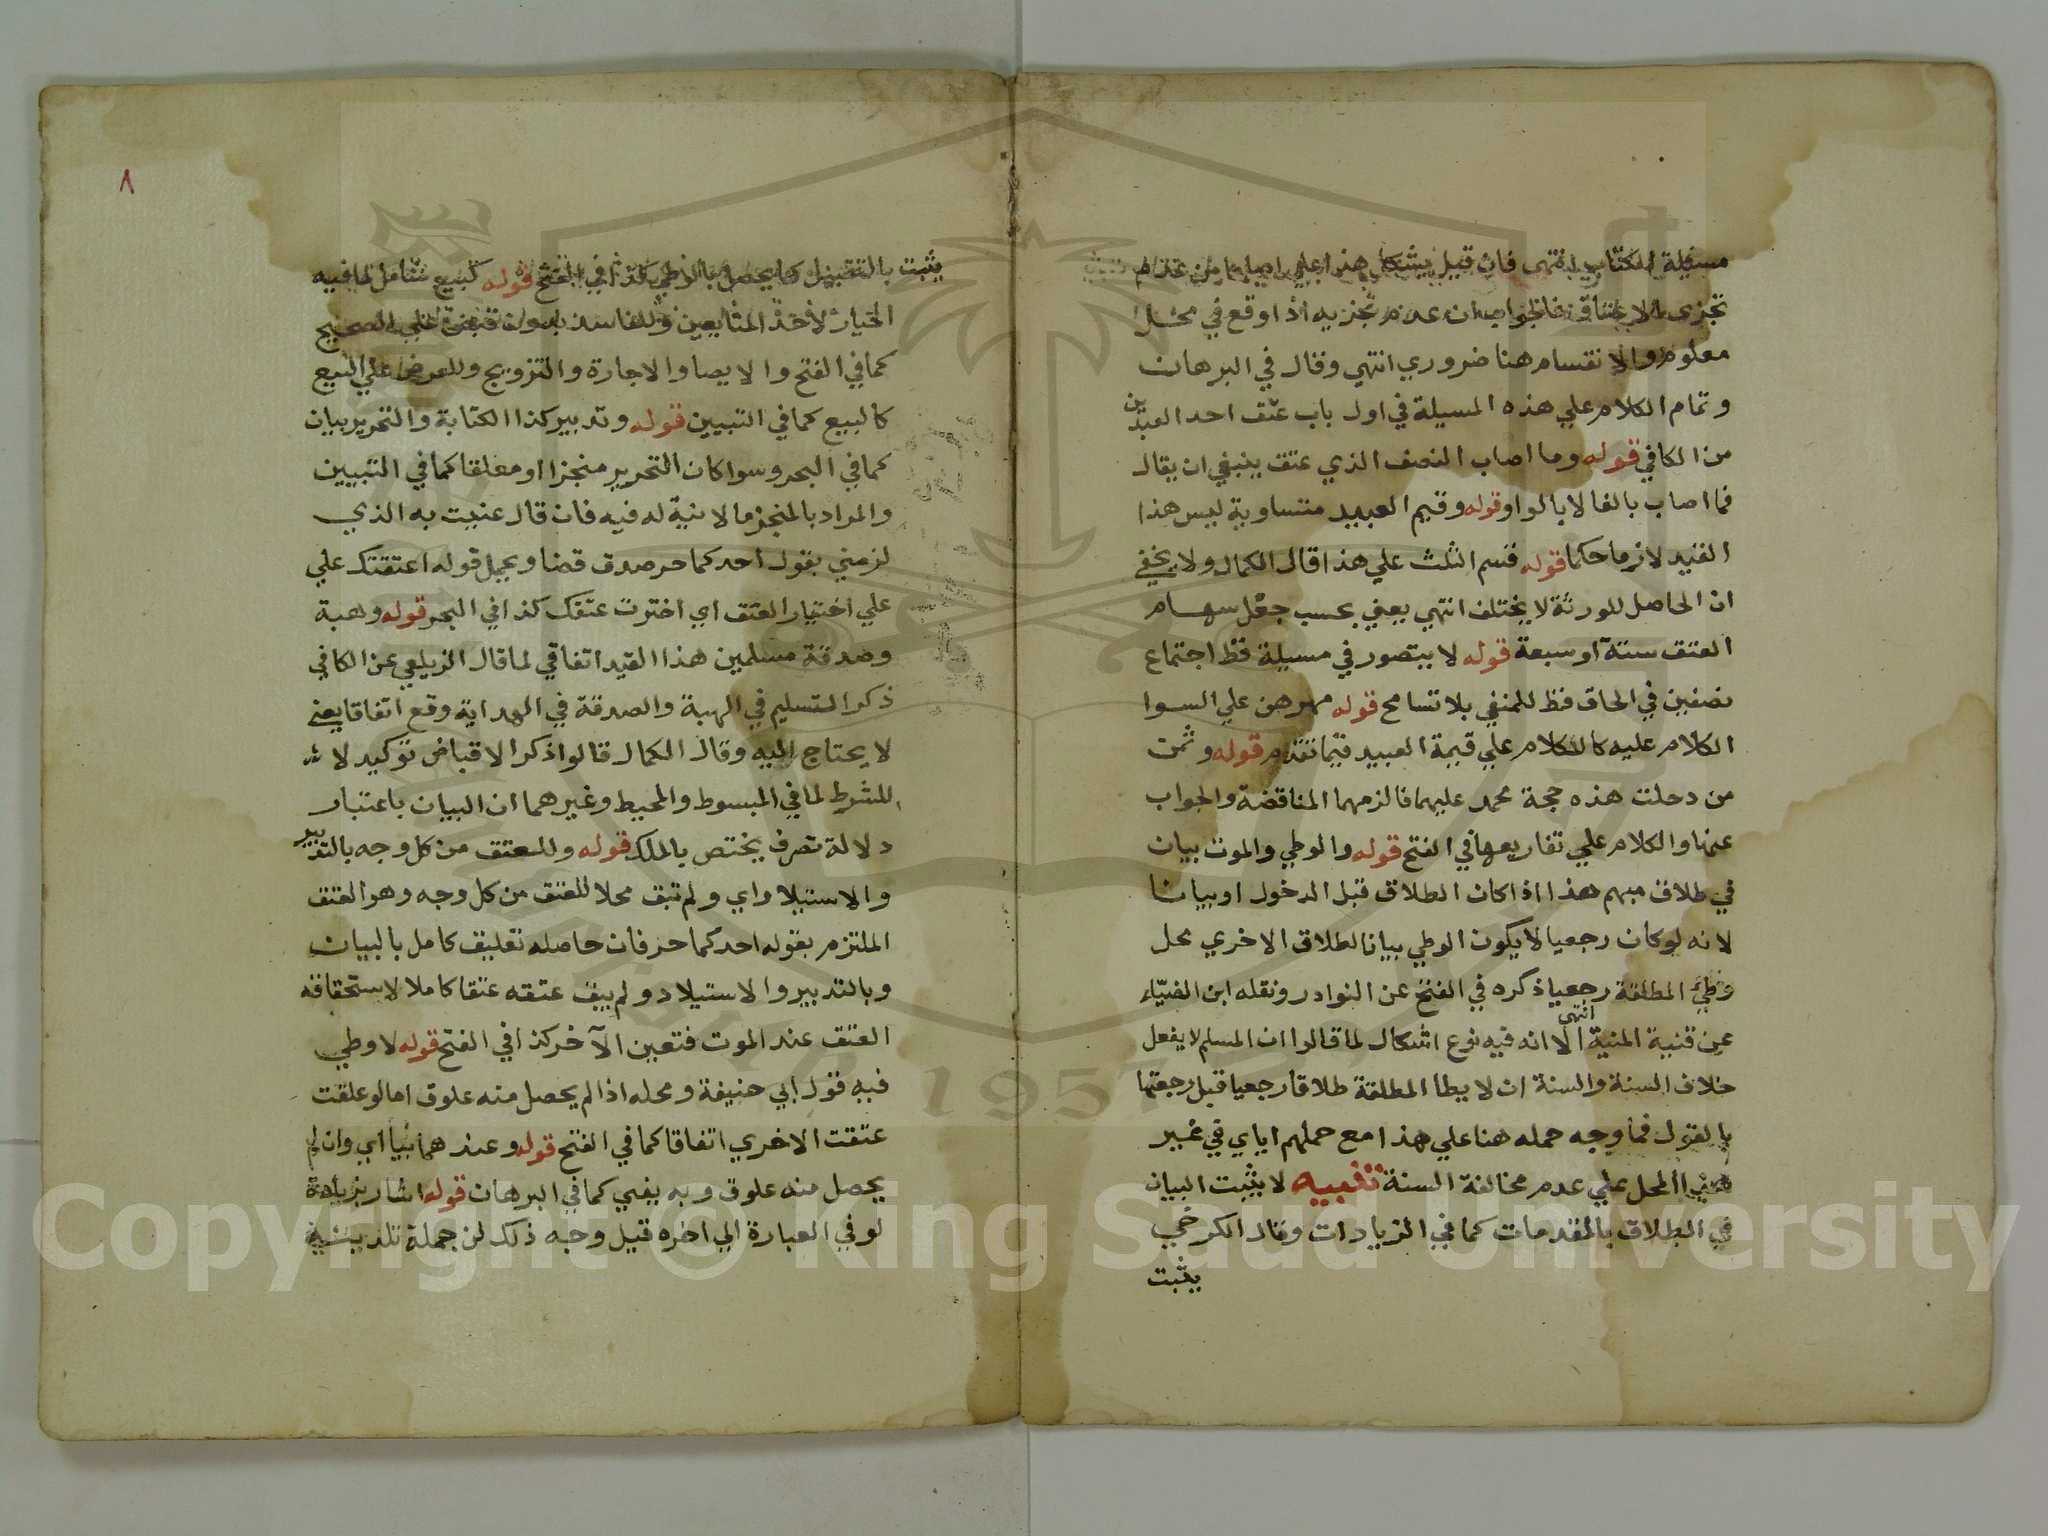 مسيلة الكتاب انتهى فان قيل يشكل هذا علي اصلهما من عدم
تجزى الاعتاق فالجواب ان عدم تجزيه اذا وقع في محل
معلوم والانقسام هنا ضروري انتهي وقال في البرهان
وتمام الكلام علي هذه المسيلة في اول باب عتق احد العبدين
من الكافي قوله وما اصاب النصف الذي عتق ينبغي ان يقال
فما اصاب بالفا لا بالواو قوله وقيم العبيد متساوية ليس هذا
القيد لازما حكما قوله قسم الثلث علي هذا قال الكمال ولا يخفي
ان الحاصل للورثة لا يختلف انتهي يعني بحسب جعل سهام
العتق ستة او سبعة قوله لا يتصور في مسيلة قط اجتماع
نصفين في الحاق قط للمنفي بلا تسامح قوله مهرهن علي السوا
الكلام عليه كالكلام علي قيمة العبيد فيما تقدم قوله وثمن
من دخلت هذه حجة محمد عليهما فالزمهما المناقضة والجواب
عنها والكلام علي تفاريعها في الفتح قوله والوطي والموت بيان
في طلاق مبهم هذا اذا كان الطلاق قبل الدخول او بيانا
لانه لو كان رجعيا لا يكون الوطي بيانا لطلاق الاخري محل
وطي المطلقة رجعيا ذكره في الفتح عن النوادر ونقله ابن الضياء
عن قنية المنية انتهى الا انه فيه نوع اشكال لما قالوا ان المسلم لا يفعل
خلاف السنة والسنة ان لا يطا المطلقة طلاقا رجعيا قبل رجعتها
بالقول فما وجه حمله هنا علي هذا مع حملهم اياي في غير
هذا المحل علي عدم مخالفة السنة تنبيه لا يثبت البيان
في الطلاق بالمقدمات كما في الزيادات وقال الكرخي
يثبت
٨
يثبت بالتقبيل كما يحصل بالوطي كذا في الفتح قوله كبيع شامل لما فيه
الخيار لاحد المتبايعين وللفاسد بدون قبض علي الصحيح
كما في الفتح والايصا والاجارة والتزويج وللعرض علي البيع
كالبيع كما في التبيين قوله وتدبير كذا الكتابة والتحرير بيان
كما في البحر وسوا كان التحرير منجزا او معلقا كما في التبيين
والمراد بالمنجز ما لا نية له فيه فان قال عنيت به الذي
لزمني بقول احدكما حر صدق قضا ويحمل قوله اعتقتك علي
علي اختيار العتق اي اخترت عتقك كذا في البحر قوله وهبة
وصدقة مسلمين هذا القيد اتفاقي لما قال الزيلعي عن الكافي
ذكر التسليم في الهبة والصدقة في الهداية وقع اتفاقا يعني
لا يحتاج اليه وقال الكمال قالوا ذكر الاقباض توكيد لا
للشرط لما في المبسوط والمحيط وغيرهما ان البيان باعتبار
دلالة تصرف يختص بالملك قوله وللعتق من كل وجه بالتدبير
والاستيلا واي ولم تبق محلا للعتق من كل وجه وهو العتق
الملتزم بقوله احدكما حر فان حاصله تعليق كامل بالبيان
وبالتدبير والاستيلاد ولم يبق عتقه عتقا كاملا لاستحقاقه
العتق عند الموت فتعين الآخر كذا في الفتح قوله لا وطي
فيه قول ابي حنيفة ومحله اذا لم يحصل منه علوق اما لو علقت
عتقت الاخري اتفاقا كما في الفتح قوله وعندهما بيان اي وان لم
يحصل منه علوق وبه يفتي كما في البرهان قوله اشار بزيادة
لو في العبارة الي اخره قيل وجه ذلك لن جملة تلد